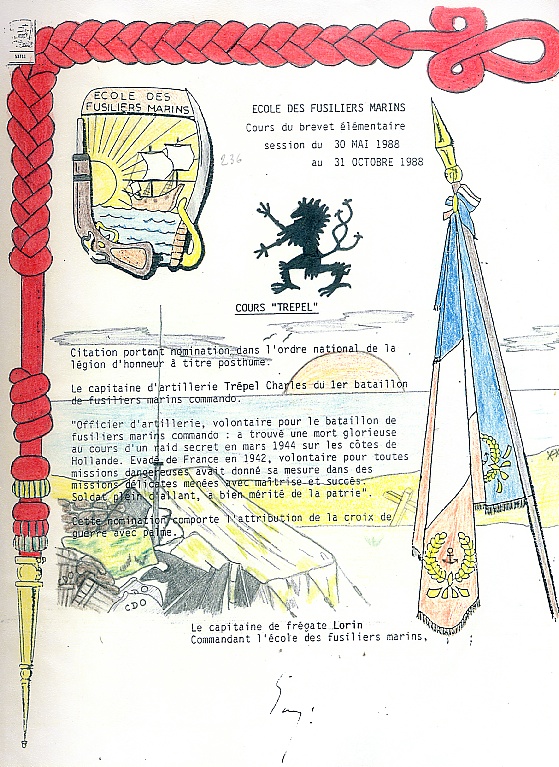 ECOLE DES
FUSILIERS MARINS
236
ECOLE DES FUSILIERS MARINS
Cours du brevet élémentaire
session du 30 MAI 1988
au 31 OCTOBRE 1988
COURS "TREPEL"
Citation portant nomination dans l'ordre national de la
légion d'honneur à titre posthume.
Le capitaine d'artillerie Trépel Charles du 1er bataillon
de fusiliers marins commando.
"Officier d'artillerie, volontaire pour le bataillon de
fusiliers marins commando : a trouvé une mort glorieuse
au cours d'un raid secret en mars 1944 sur les côtes de
Hollande. Evadé de France en 1942, volontaire pour toutes
missions dangereuses, avait donné sa mesure dans des
missions délicates menées avec maîtrise et succès.
Soldat plein d'allant, a bien mérité de la patrie".
Cette nomination comporte l'attribution de la croix de
guerre avec palme.
CDO
Le capitaine de frégate Lorin
Commandant l'école des fusiliers marins,